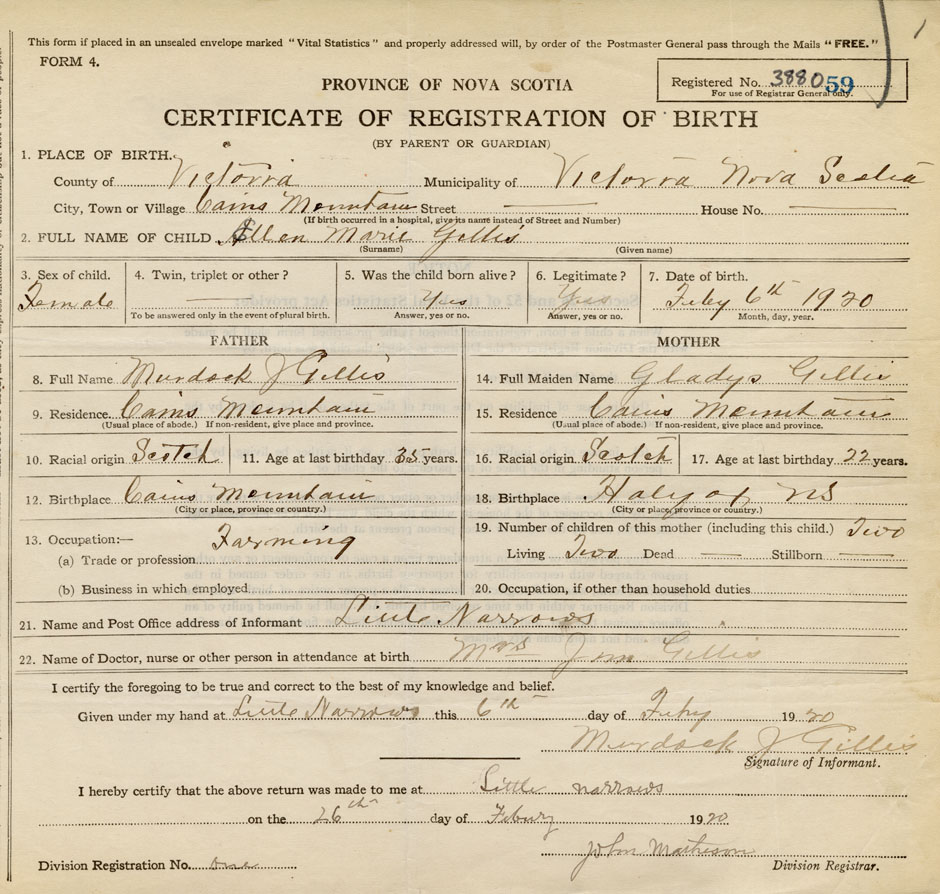 This form if placed in an unsealed envelope marked "Vital Statistics" and properly addressed will, by order of the Postmaster General pass through the Mails "FREE."
FORM 4.
PROVINCE OF NOVA SCOTIA
Registered No. 3880 59
For use of Registrar General only.
CERTIFICATE OF REGISTRATION OF BIRTH
(BY PARENT OR GUARDIAN)
1. PLACE OF BIRTH.
County of Victoria Municipality of Victoria Nova Scotia
City, Town or Village Cains Mountain Street House No.
(If birth occurred in a hospital, give its name instead of Street and Number)
2. FULL NAME OF CHILD Ellen Marie Gillis
(Surname) (Given name)
3. Sex of child. 4. Twin, triplet or other? 5. Was the child born alive? 6. Legitimate? 7. Date of birth.
Female Yes Yes Feby 6th 1920
To be answered only in the event of plural birth. Answer, yes or no. Answer, yes or no. Month, day, year.
FATHER MOTHER
8. Full Name Murdock J Gillis 14. Full Maiden Name Gladys Gillis
9. Residence Cains Mountain 15. Residence Cains Mountain
(Usual place of abode.) If non-resident, give place and province. (Usual place of abode.) If non-resident, give place and province.
10. Racial origin Scotch 11. Age at last birthday 35 years. 16. Racial origin Scotch 17. Age at last birthday 22 years.
12. Birthplace Cains Mountain 18. Birthplace NS
(City or place, province or country.) (City or place, province or country.)
13. Occupation:— Farming 19. Number of children of this mother (including this child.) Two
(a) Trade or profession Living Two Dead — Stillborn —
(b) Business in which employed 20. Occupation, if other than household duties
21. Name and Post Office address of Informant Little Narrows
22. Name of Doctor, nurse or other person in attendance at birth Mrs Gillis
I certify the foregoing to be true and correct to the best of my knowledge and belief.
Given under my hand at Little Narrows this 6th day of Feby 1920
Murdock J Gillis
Signature of Informant.
I hereby certify that the above return was made to me at Little narrows
on the 26th day of Febury 1920
John Matheson
Division Registration No. one Division Registrar.